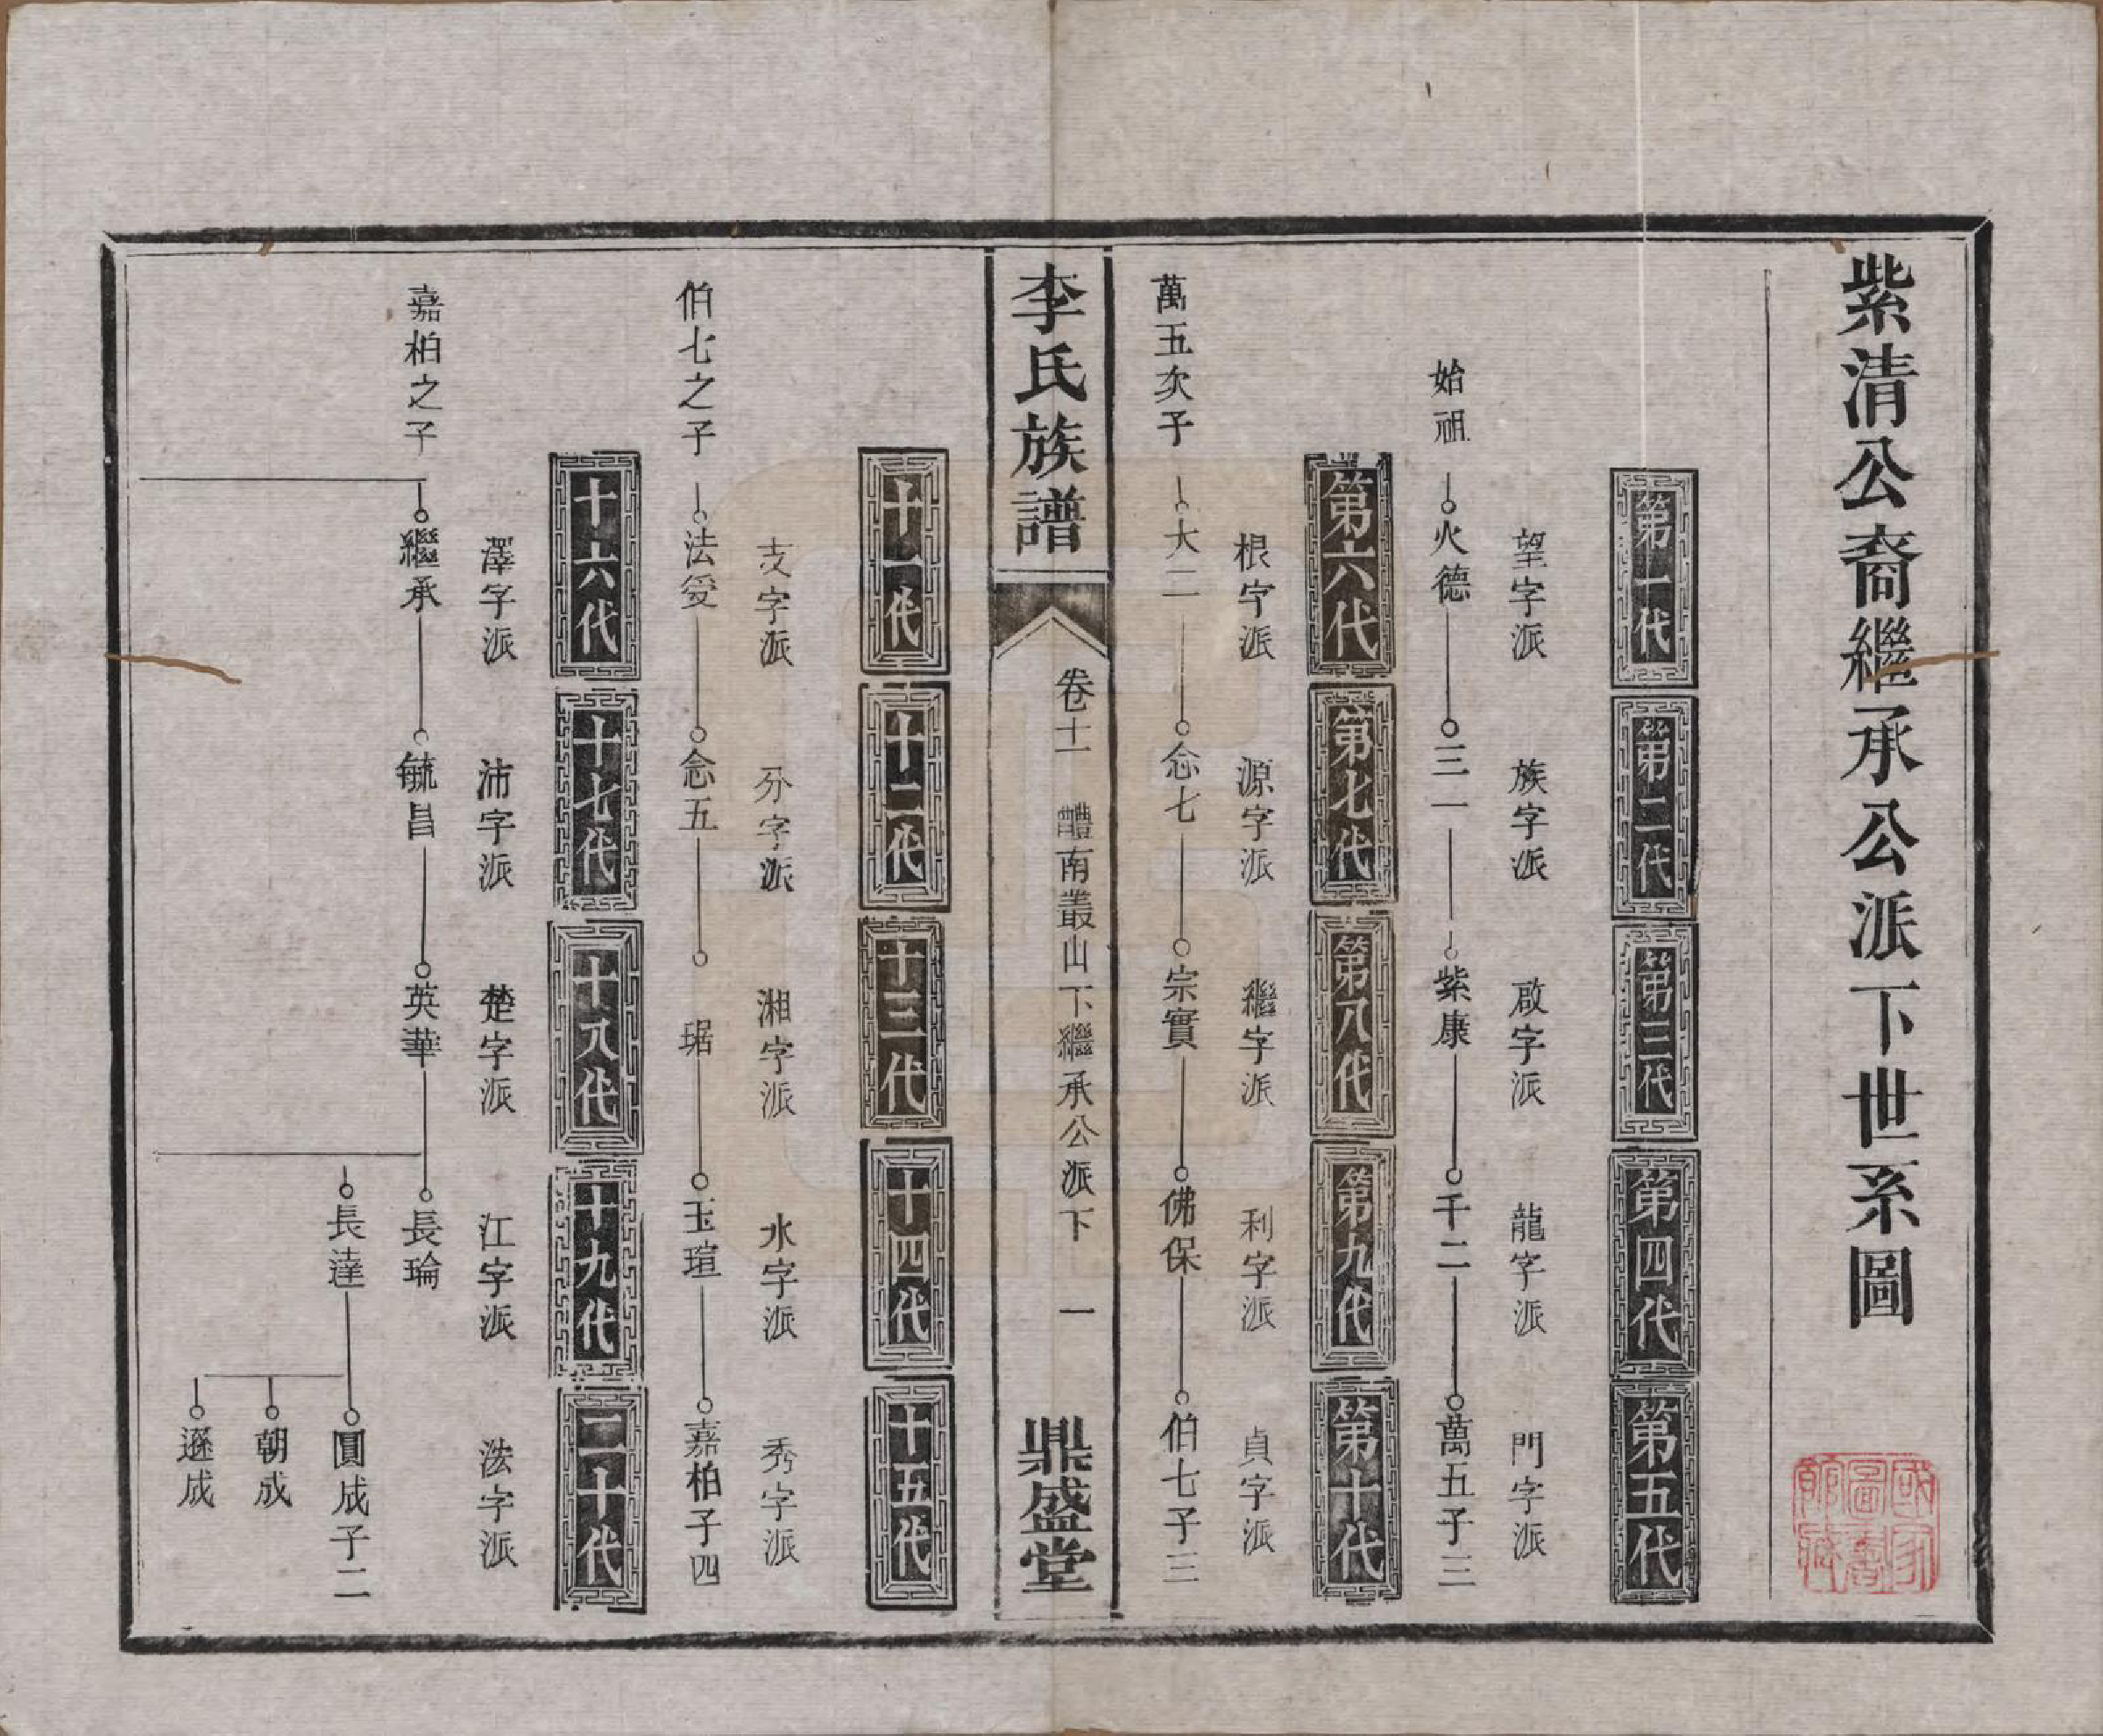 紫清公裔繼承公派下世系圖
第一代 第二代 第三代 第四代 第五代
望字派 族字派 啟字派 龍字派 門字派
始祖 火德 三一 紫康 千二 萬五子三
第六代 第七代 第八代 第九代 第十代
根字派 源字派 繼字派 利字派 貞字派
萬五次子 大二 念七 宗實 佛保 伯七子三
李氏族譜 卷十一 醴南叢山下繼承公派下 一 鼎盛堂
十一代 十二代 十三代 十四代 十五代
支字派 分字派 湘字派 水字派 秀字派
伯七之子 法受 念五 琚 玉瑄 嘉柏子四
十六代 十七代 十八代 十九代 二十代
澤字派 沛字派 楚字派 江字派 法字派
嘉柏之子 繼承 毓昌 英華 長瑜
長達 圓成子二
朝成
遜成
國家圖書館藏